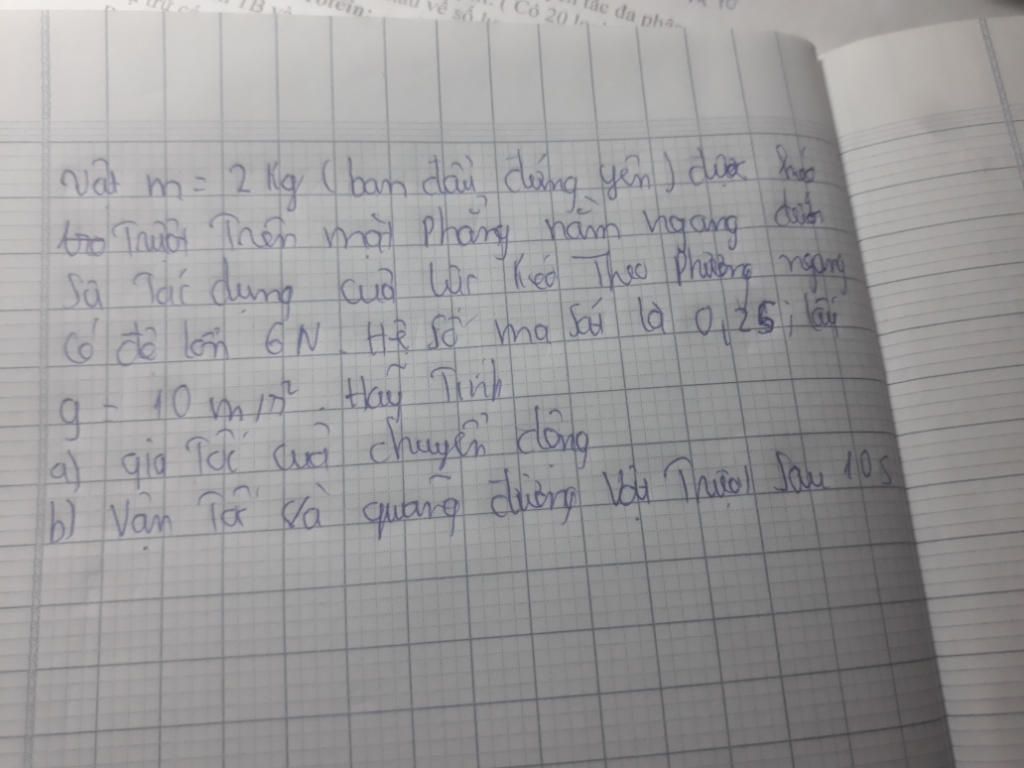 rotein.
. ( Có 20
tắc đa phâ
Vật m = 2 Kg (ban đầu đứng yên) được kéo
Trượt Trên mặt Phẳng nằm ngang dưới
Sự Tác dụng của lực Kéo Theo Phương ngang
Có độ lớn 6N. Hệ số ma sát là 0,25; lấy
g = 10 m/s². Hãy Tính
a) gia Tốc của chuyển động
b) Vận Tốc và quãng đường Vật Trượt Sau 10s